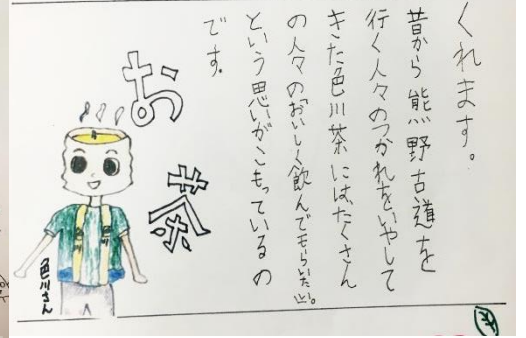 くれます。
昔から熊野古道を
行く人々のつかれをいやして
きた色川茶には、たくさん
の人々の「おいしく飲んでもらいたい」。
という思いがこもっているの
です。
お茶
色川さん